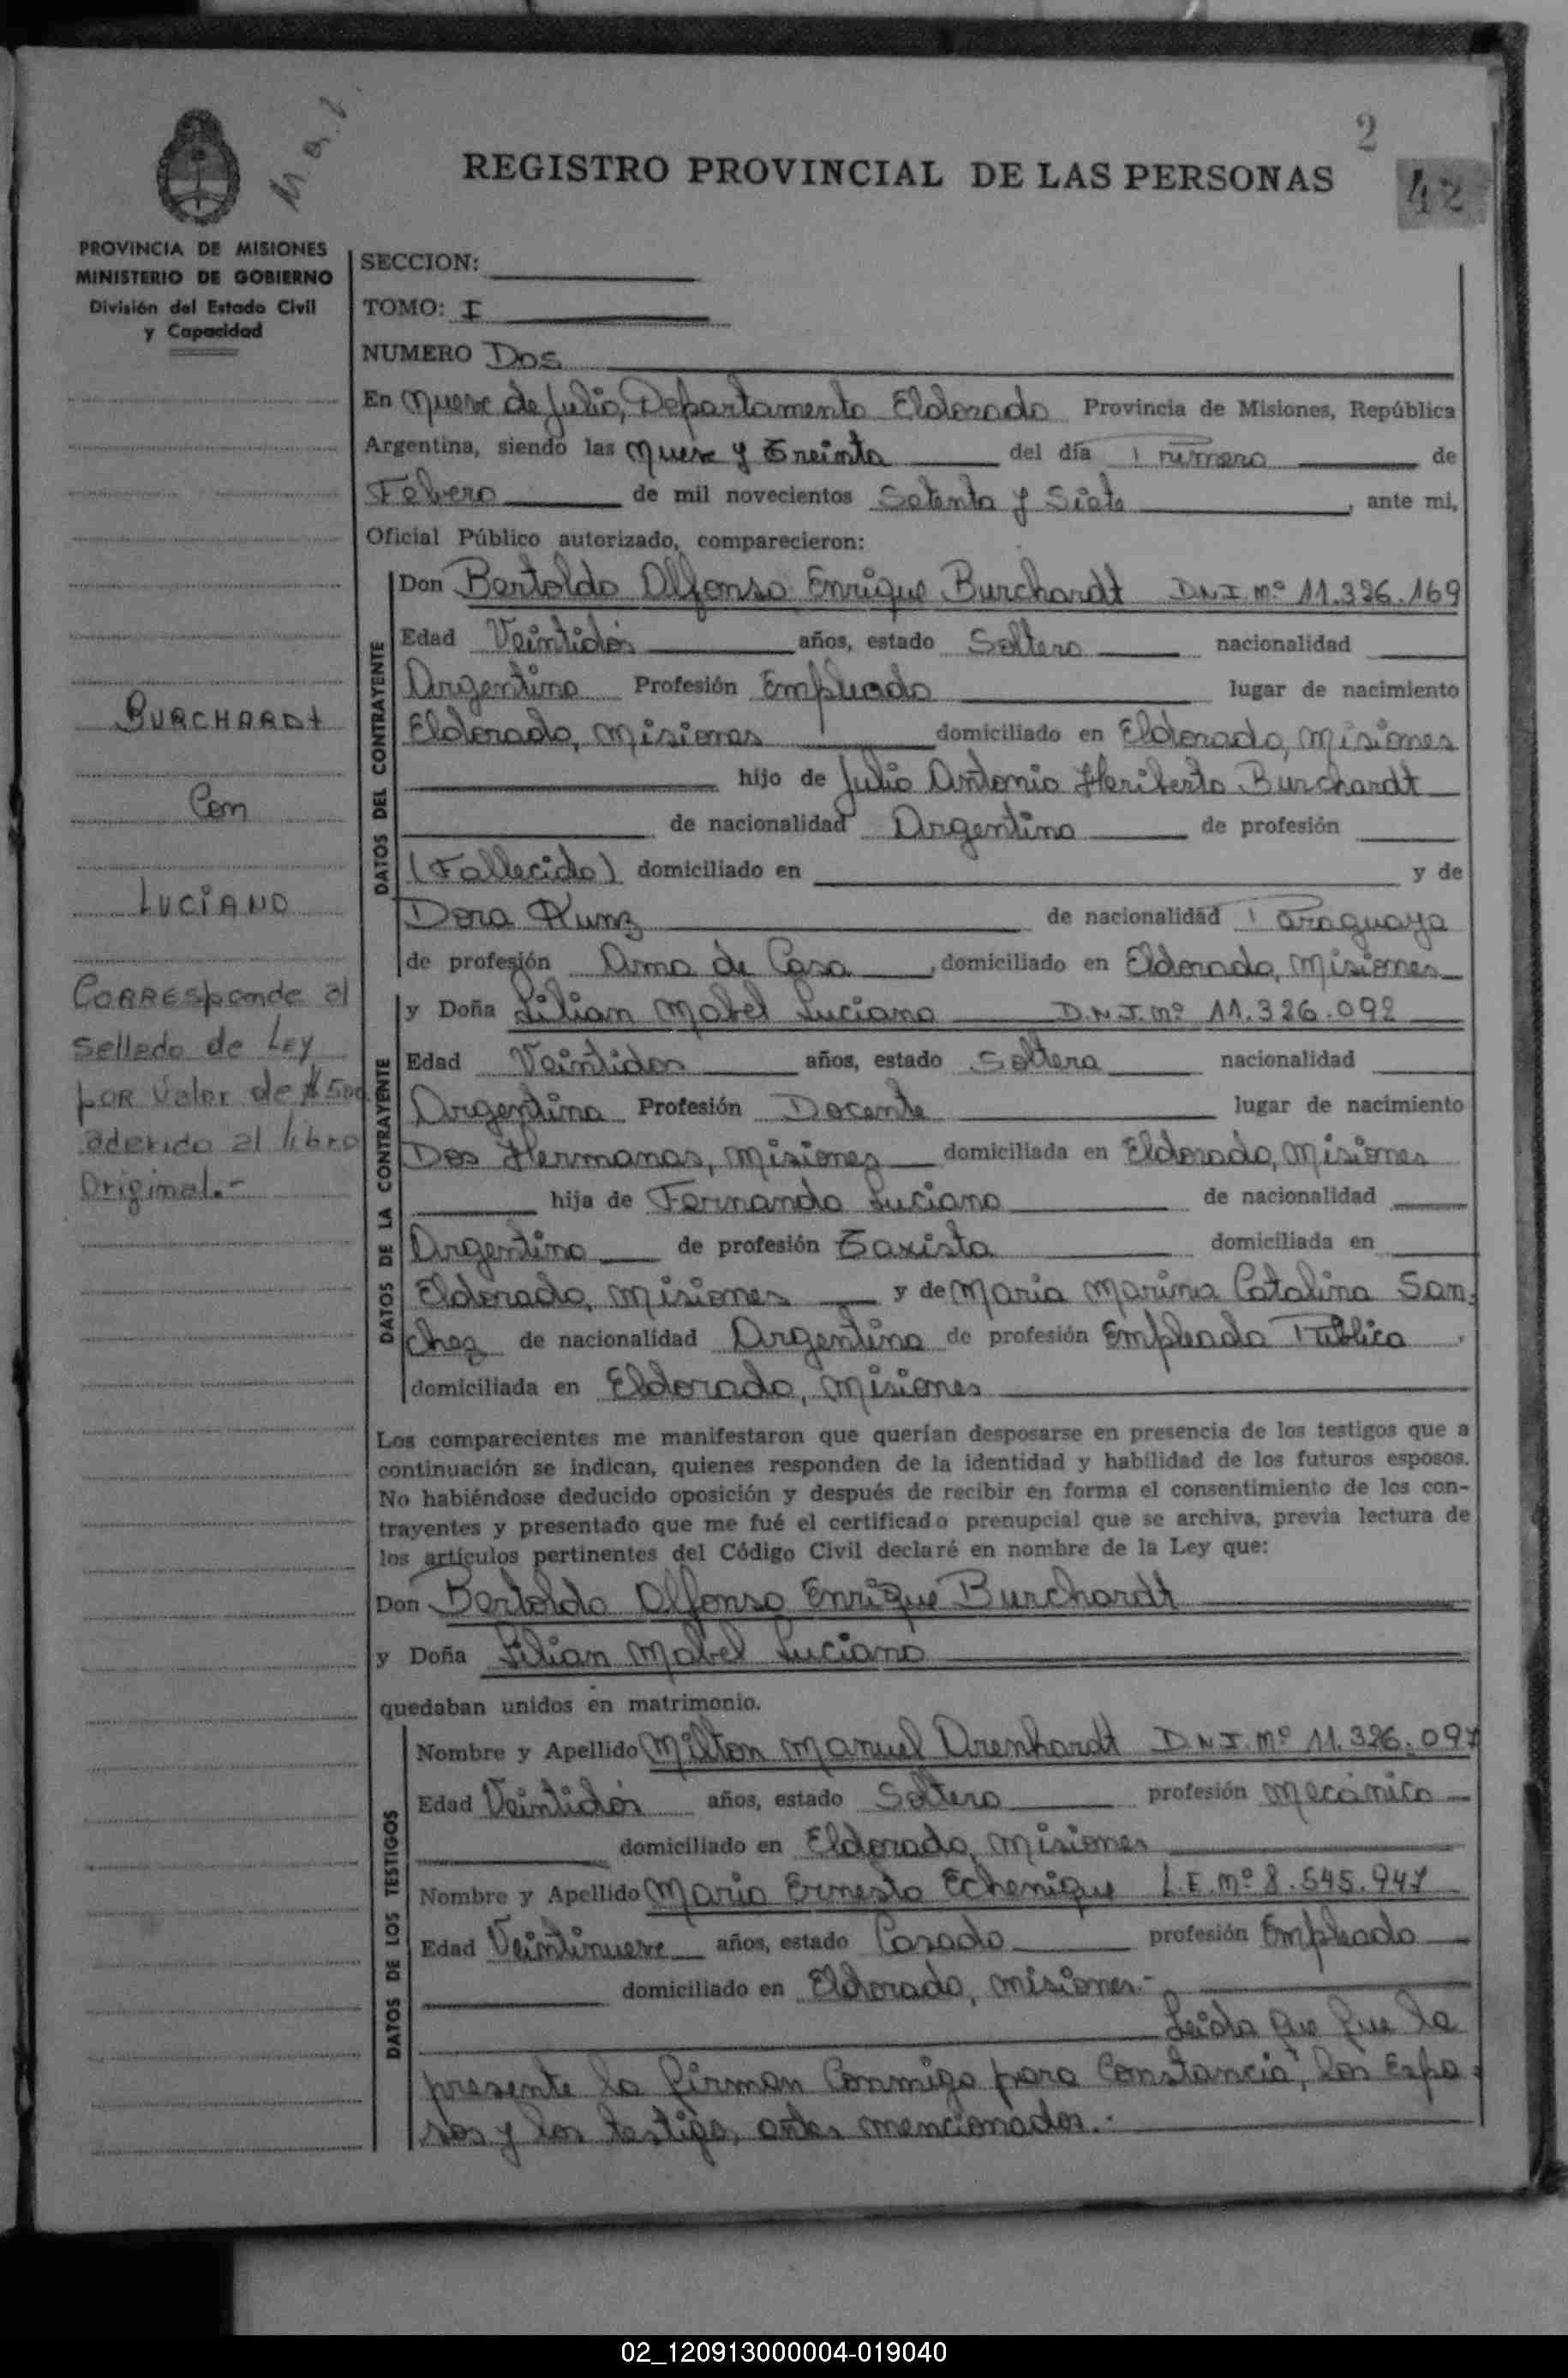 2
REGISTRO PROVINCIAL DE LAS PERSONAS
42
PROVINCIA DE MISIONES
MINISTERIO DE GOBIERNO
División del Estado Civil
y Capacidad
BURCHARDt
Con
LUCiANO
CORRESponde al
Sellado de LEy
poR valor de $500
aderido al libro
Original.-
SECCION:
TOMO: I
NUMERO Dos
En Nueve de Julio, Departamento Eldorado Provincia de Misiones, República
Argentina, siendo las Nueve y Treinta del día Primero de
Febero de mil novecientos Setenta y Siete, ante mi,
Oficial Público autorizado, comparecieron:
DATOS DEL CONTRAYENTE
Don Bertoldo Alfonso Enrique Burchardt D.N.I. Nº 11.326.169
Edad Veintidós años, estado Soltero nacionalidad
Argentina Profesión Empleado lugar de nacimiento
Eldorado, Misiones domiciliado en Eldorado, Misiones
hijo de Julio Antonio Heriberto Burchardt
de nacionalidad Argentina de profesión
(Fallecido) domiciliado en y de
Dora Kunz de nacionalidad Paraguaya
de profesión Ama de Casa, domiciliado en Eldorado, Misiones
DATOS DE LA CONTRAYENTE
y Doña Lilian Mabel Luciano D.N.I. Nº 11.326.092
Edad Veintidos años, estado Soltera nacionalidad
Argentina Profesión Docente lugar de nacimiento
Dos Hermanas, Misiones domiciliada en Eldorado, Misiones
hija de Fernando Luciano de nacionalidad
Argentino de profesión Taxista domiciliada en
Eldorado, Misiones y de Maria Marina Catalina San-
chez de nacionalidad Argentina de profesión Empleada Pública
domiciliada en Eldorado, Misiones
Los comparecientes me manifestaron que querían desposarse en presencia de los testigos que a
continuación se indican, quienes responden de la identidad y habilidad de los futuros esposos.
No habiéndose deducido oposición y después de recibir en forma el consentimiento de los con-
trayentes y presentado que me fué el certificado prenupcial que se archiva, previa lectura de
los artículos pertinentes del Código Civil declaré en nombre de la Ley que:
Don Bertoldo Alfonso Enrique Burchardt
y Doña Lilian Mabel Luciano
quedaban unidos en matrimonio.
DATOS DE LOS TESTIGOS
Nombre y Apellido Milton Manuel Arenhardt D.N.I. Nº 11.326.097
Edad Veintidós años, estado Soltero profesión Mecánico
domiciliado en Eldorado, Misiones
Nombre y Apellido Mario Ernesto Echenique L.E. Nº 8.545.947
Edad Veintinueve años, estado Casado profesión Empleado
domiciliado en Eldorado, Misiones.-
Leida que fue la
presente la firman Conmigo para Constancia, los Espo-
sos y los testigo, antes mencionados.-
02_120913000004-019040